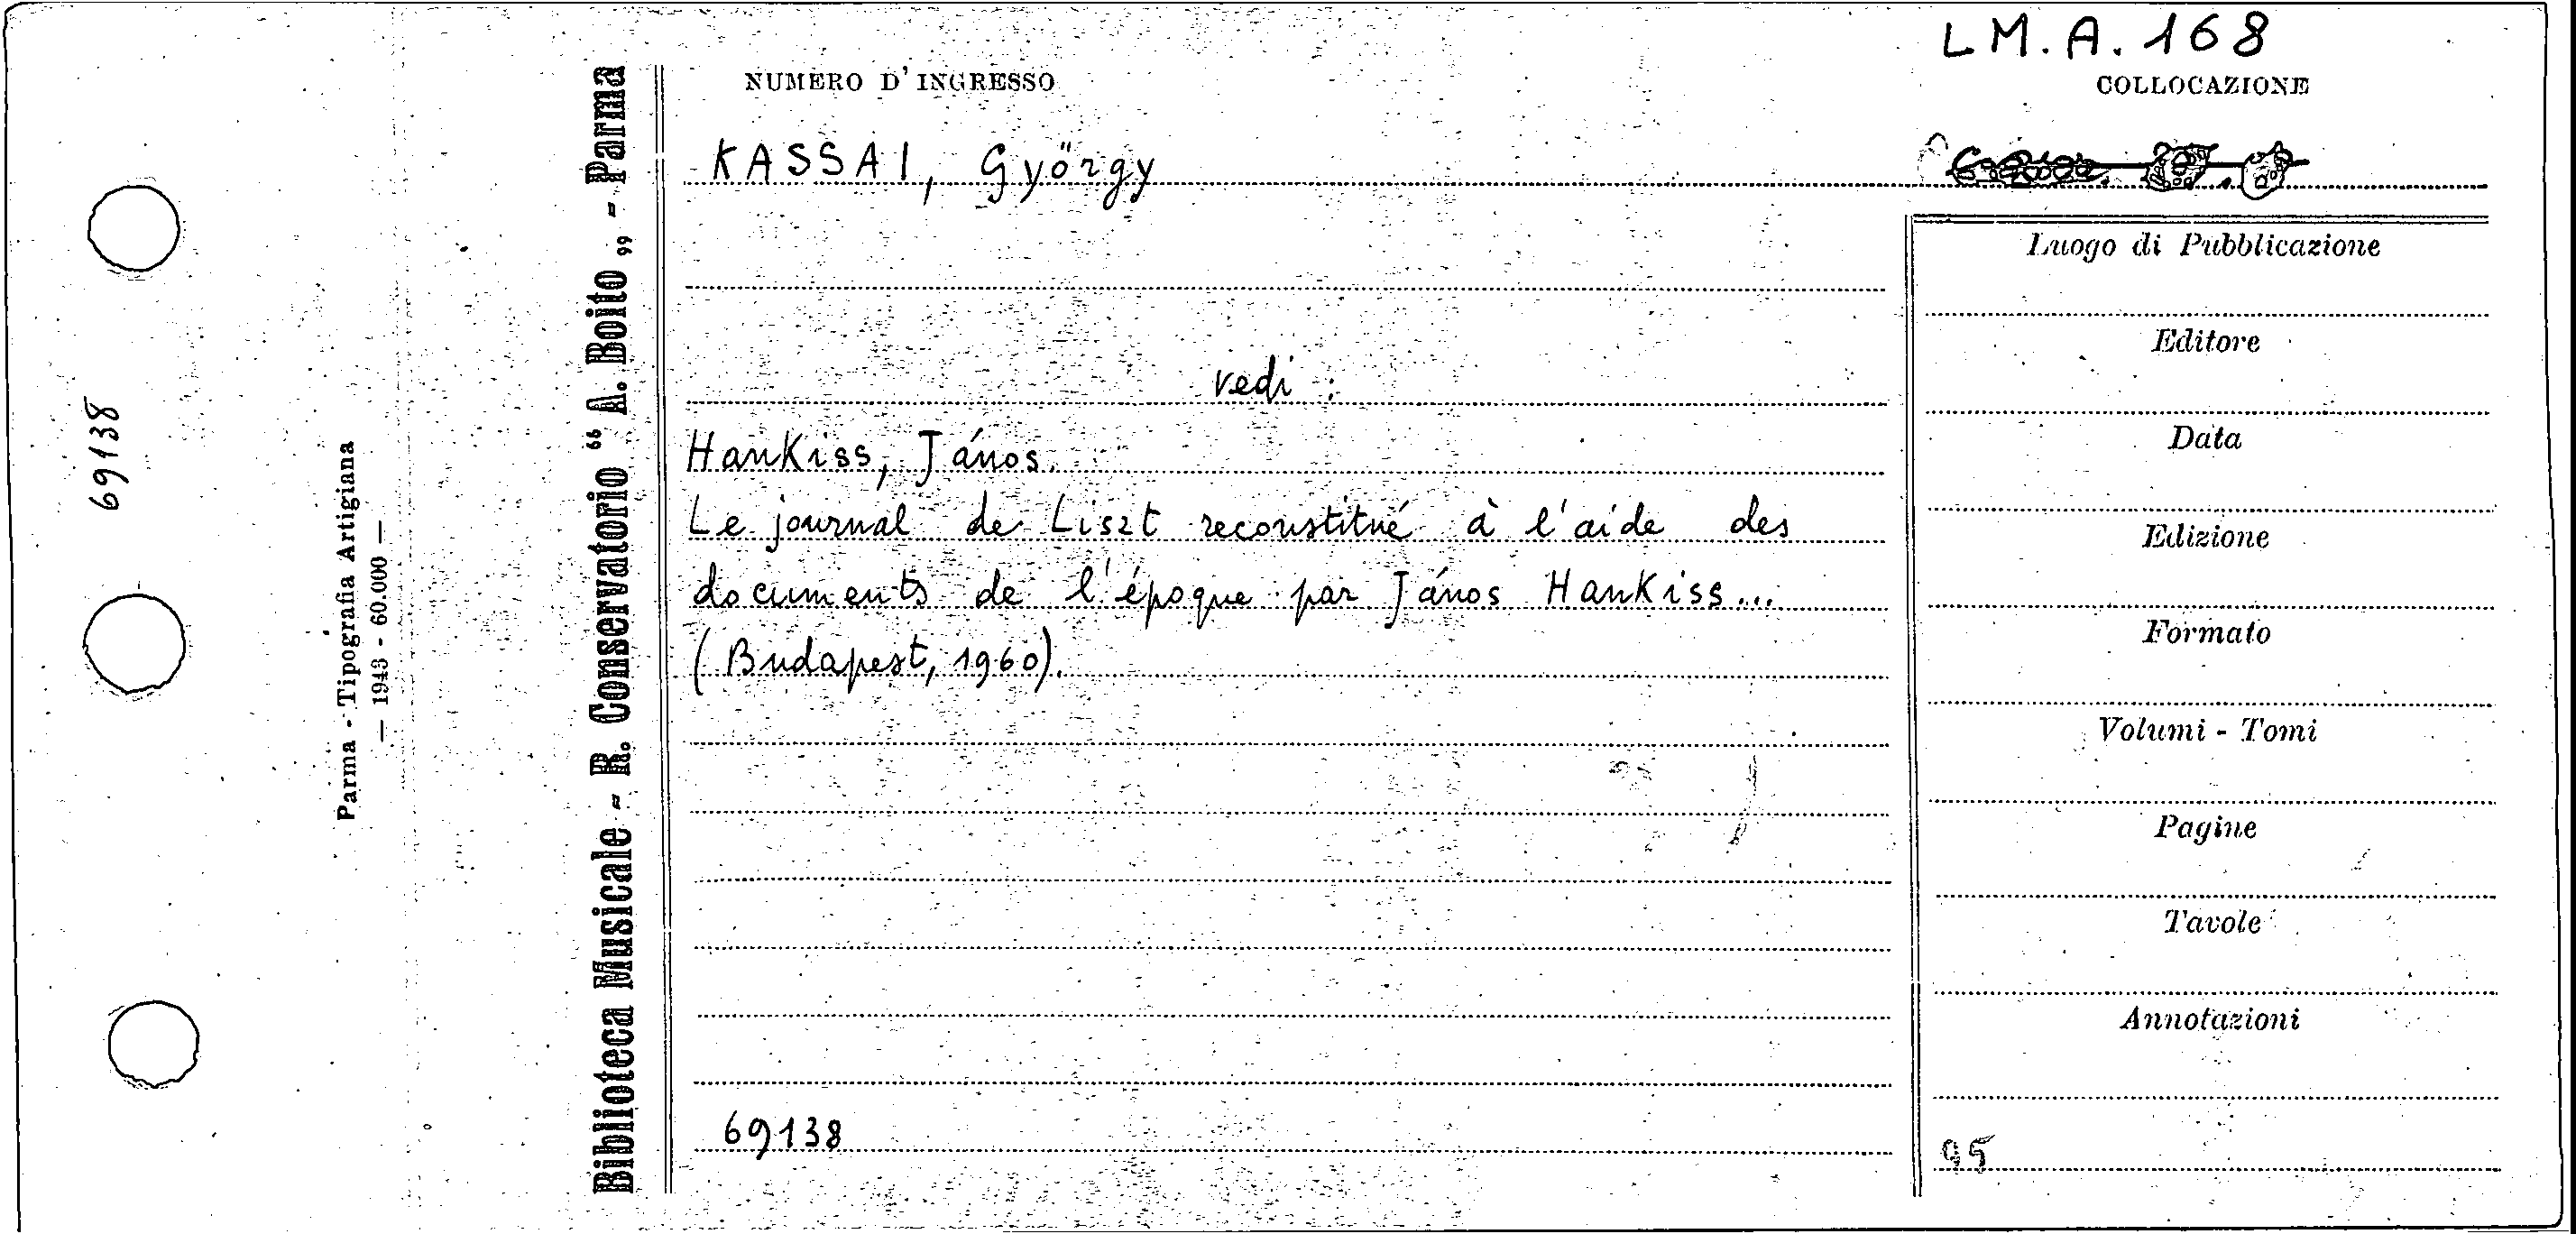 LM.A.168
NUMERO D'INGRESSO
COLLOCAZIONE
KASSAI, György
vedi:
Hankiss, János.
Le journal de Liszt reconstitué à l'aide des
documents de l'époque par János Hankiss...
(Budapest, 1960).
69138
Luogo di Pubblicazione
Editore
Data
Edizione
Formato
Volumi - Tomi
Pagine
Tavole
Annotazioni
95
Biblioteca Musicale - R. Conservatorio “A. Boito„ - Parma
Parma - Tipografia Artigiana
— 1943 - 60.000 —
69138